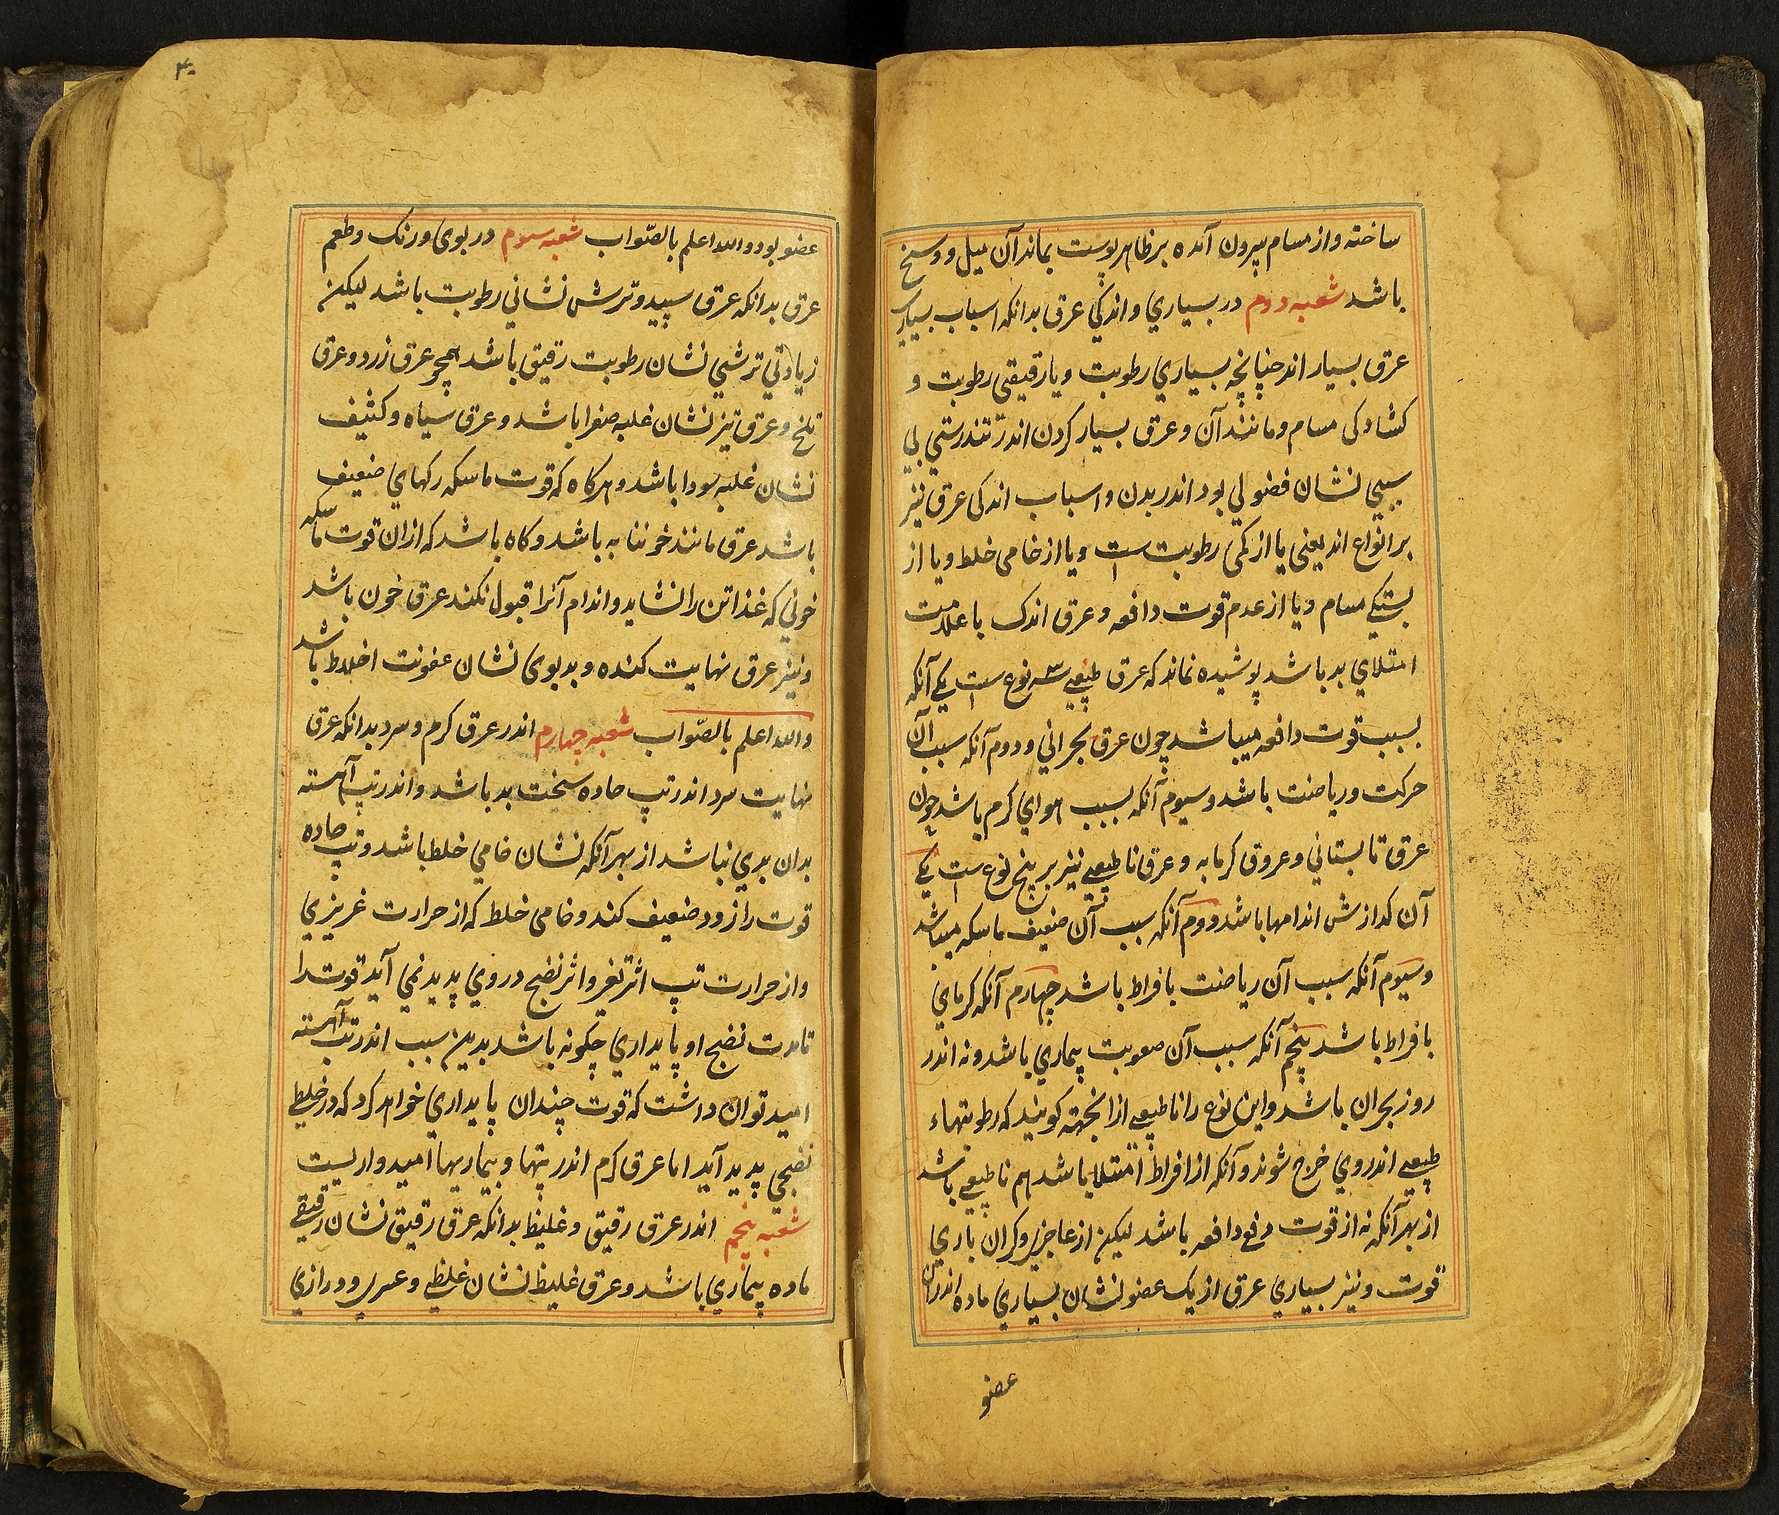 ساخته و از مسام بیرون آمده بر ظاهر پوست بماند آن میل و وسخ
باشد شعبه دوم در بسیاري و اندکي عرق بدانکه اسباب بسیاري
عرق بسیار اند چنانچه بسیاري رطوبت و یا رقیقي رطوبت و
کشادکی مسام و مانند آن و عرق بسیار کردن اندر تندرستي بي
سببي نشان فضولي بود اندر بدن و اسباب اندکی عرق نیز
بر انواع اند یعنی یا از کمی رطوبت است و یا از خامی خلط و یا از
بستکي مسام و یا از عدم قوت دافعه و عرق اندک با علامت
امتلاي بد باشد پوشیده نماند که عرق طبیعي سه نوع است یکي آنکه
بسبب قوت دافعه میباشد چون عرق بحراني و دوم آنکه سبب آن
حرکت و ریاضت باشد و سیوم آنکه بسبب هواي کرم باشد چون
عرق تابستاني و عروق کرمابه و عرق ناطبیعي نیز بر پنج نوع است یکي
آن کدازش اندامها باشد دوم آنکه سبب آن ضعیف ماسکه میباشد
و سیوم آنکه سبب آن ریاضت بافراط باشد چهارم آنکه کرماي
بافراط باشد پنجم آنکه سبب آن صعوبت بیماري باشد و نه اندر
روز بحران باشد و این نوع را ناطبیعي ازانجهته کویند که رطوبتهاء
طبیعي اندروي خرج شوند و آنکه از افراط امتلا باشد هم ناطبیعي باشد
از بهر آنکه نه از قوت دفع دافعه باشد لیکن از عاجزي و کران باري
قوت و نیز بسیاري عرق از یک عضو نشان بسیاري ماده اندران
عضو
۴۰
عضو بود و الله اعلم بالصّواب شعبه سوم در بوی و رنک و طعم
عرق بدانکه عرق سپید و ترش نشاني رطوبت باشد لیکن
زیادتي ترشي نشان رطوبت رقیق باشد همچو عرق زرد و عرق
تلخ و عرق تیز نشان غلبه صفرا باشد و عرق سیاه و کثیف
نشان غلبه سودا باشد و هرکاه که قوت ماسکه رکهاي ضعیف
باشد عرق مانند خوننابه باشد و کاه باشد که از ان قوت ماسکه
خوني که غذا تن را نشاید و اندام آنرا قبول نکند عرق خون باشد
و نیز عرق نهایت کنده و بدبوی نشان عفونت اخلاط باشد
و الله اعلم بالصّواب شعبه چهارم اندر عرق کرم و سرد بدانکه عرق
نهایت سرد اندر تپ حاده سخت بد باشد و اندر تپ آهسته
بدان بدي نباشد از بهر آنکه نشان خامي خلط باشد و تپ حاده
قوت را زود ضعیف کند و خامی خلط که از حرارت غریزي
و از حرارت تپ اثر تغیر و اثر نضج در وي پدید نمي آید قوت را
تا مدت نضج او پایداري چکونه باشد بدین سبب اندر تب آهسته
امید توان داشت که قوت چندان پایداري خواهد کرد که در خلطي
نضجي پدید آید اما عرق کرم اندر تپها و بیماریها امیدواریست
شعبه پنجم اندر عرق رقیق و غلیظ بدانکه عرق رقیق نشان رقیقي
ماده بیماري باشد و عرق غلیظ نشان غلیظي و عسر و درازي